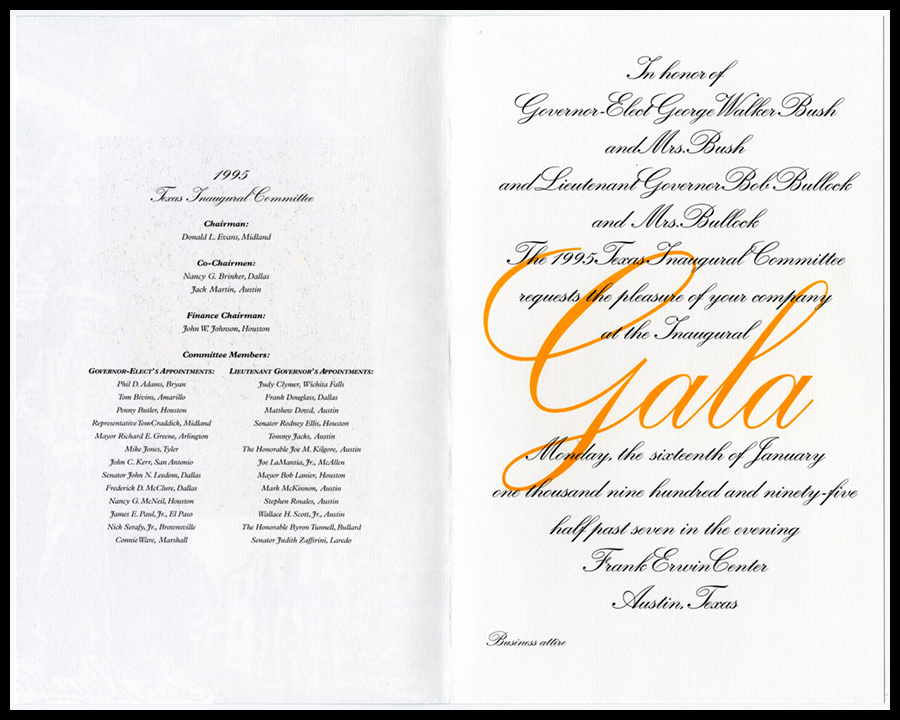 1995
Texas Inaugural Committee
Chairman:
Donald L. Evans, Midland
Co-Chairmen:
Nancy G. Brinker, Dallas
Jack Martin, Austin
Finance Chairman:
John W. Johnson, Houston
Committee Members:
Governor-Elect's Appointments:
Phil D. Adams, Bryan
Tom Bivins, Amarillo
Penny Butler, Houston
Representative Tom Craddick, Midland
Mayor Richard E. Greene, Arlington
Mike Jones, Tyler
John C. Kerr, San Antonio
Senator John N. Leedom, Dallas
Frederick D. McClure, Dallas
Nancy G. McNeil, Houston
James E. Paul, Jr., El Paso
Nick Serafy, Jr., Brownsville
Connie Ware, Marshall
Lieutenant Governor's Appointments:
Judy Clymer, Wichita Falls
Frank Douglass, Dallas
Matthew Dowd, Austin
Senator Rodney Ellis, Houston
Tommy Jacks, Austin
The Honorable Joe M. Kilgore, Austin
Joe LaMantia, Jr., McAllen
Mayor Bob Lanier, Houston
Mark McKinnon, Austin
Stephen Rosales, Austin
Wallace H. Scott, Jr., Austin
The Honorable Byron Tunnell, Bullard
Senator Judith Zaffirini, Laredo
In honor of
Governor-Elect George Walker Bush
and Mrs. Bush
and Lieutenant Governor Bob Bullock
and Mrs. Bullock
The 1995 Texas Inaugural Committee
requests the pleasure of your company
at the Inaugural
Gala
Monday, the sixteenth of January
one thousand nine hundred and ninety-five
half past seven in the evening
Frank Erwin Center
Austin, Texas
Business attire